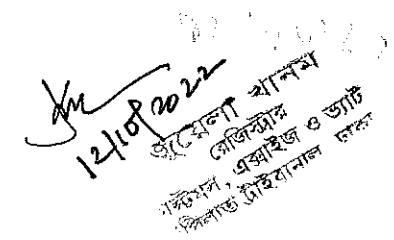 12/10/2022
জুয়েলা খানম
রেজিস্ট্রার
কাস্টমস, এক্সাইজ ও ভ্যাট
আপিলাত ট্রাইব্যুনাল ঢাকা